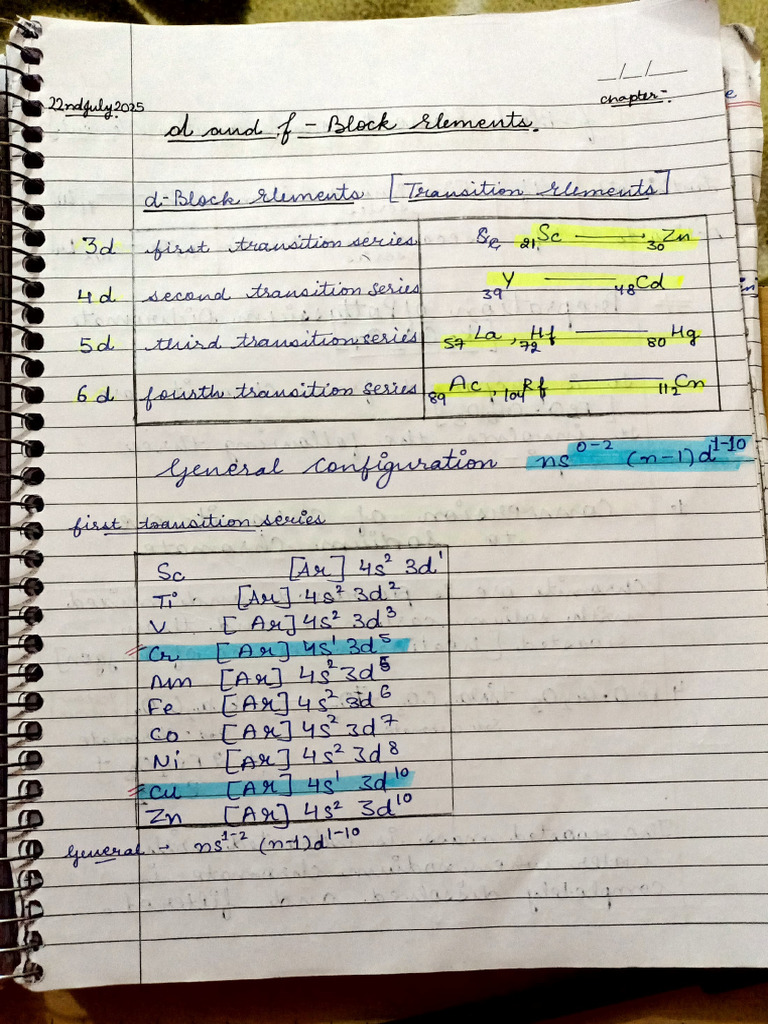 __/__/____
22nd July 2025
chapter:-
d and f - Block Elements.
d-Block Elements [Transition Elements]
3d first transition series 21Sc —— 30Zn
4d second transition series 39Y —— 48Cd
5d third transition series 57La, 72Hf —— 80Hg
6d fourth transition series 89Ac, 104Rf —— 112Cn
General Configuration ns⁰⁻² (n-1)d¹⁻¹⁰
first transition series
Sc [Ar] 4s² 3d¹
Ti [Ar] 4s² 3d²
V [Ar] 4s² 3d³
Cr [Ar] 4s¹ 3d⁵
Mn [Ar] 4s² 3d⁵
Fe [Ar] 4s² 3d⁶
Co [Ar] 4s² 3d⁷
Ni [Ar] 4s² 3d⁸
Cu [Ar] 4s¹ 3d¹⁰
Zn [Ar] 4s² 3d¹⁰
General → ns¹⁻² (n-1)d¹⁻¹⁰